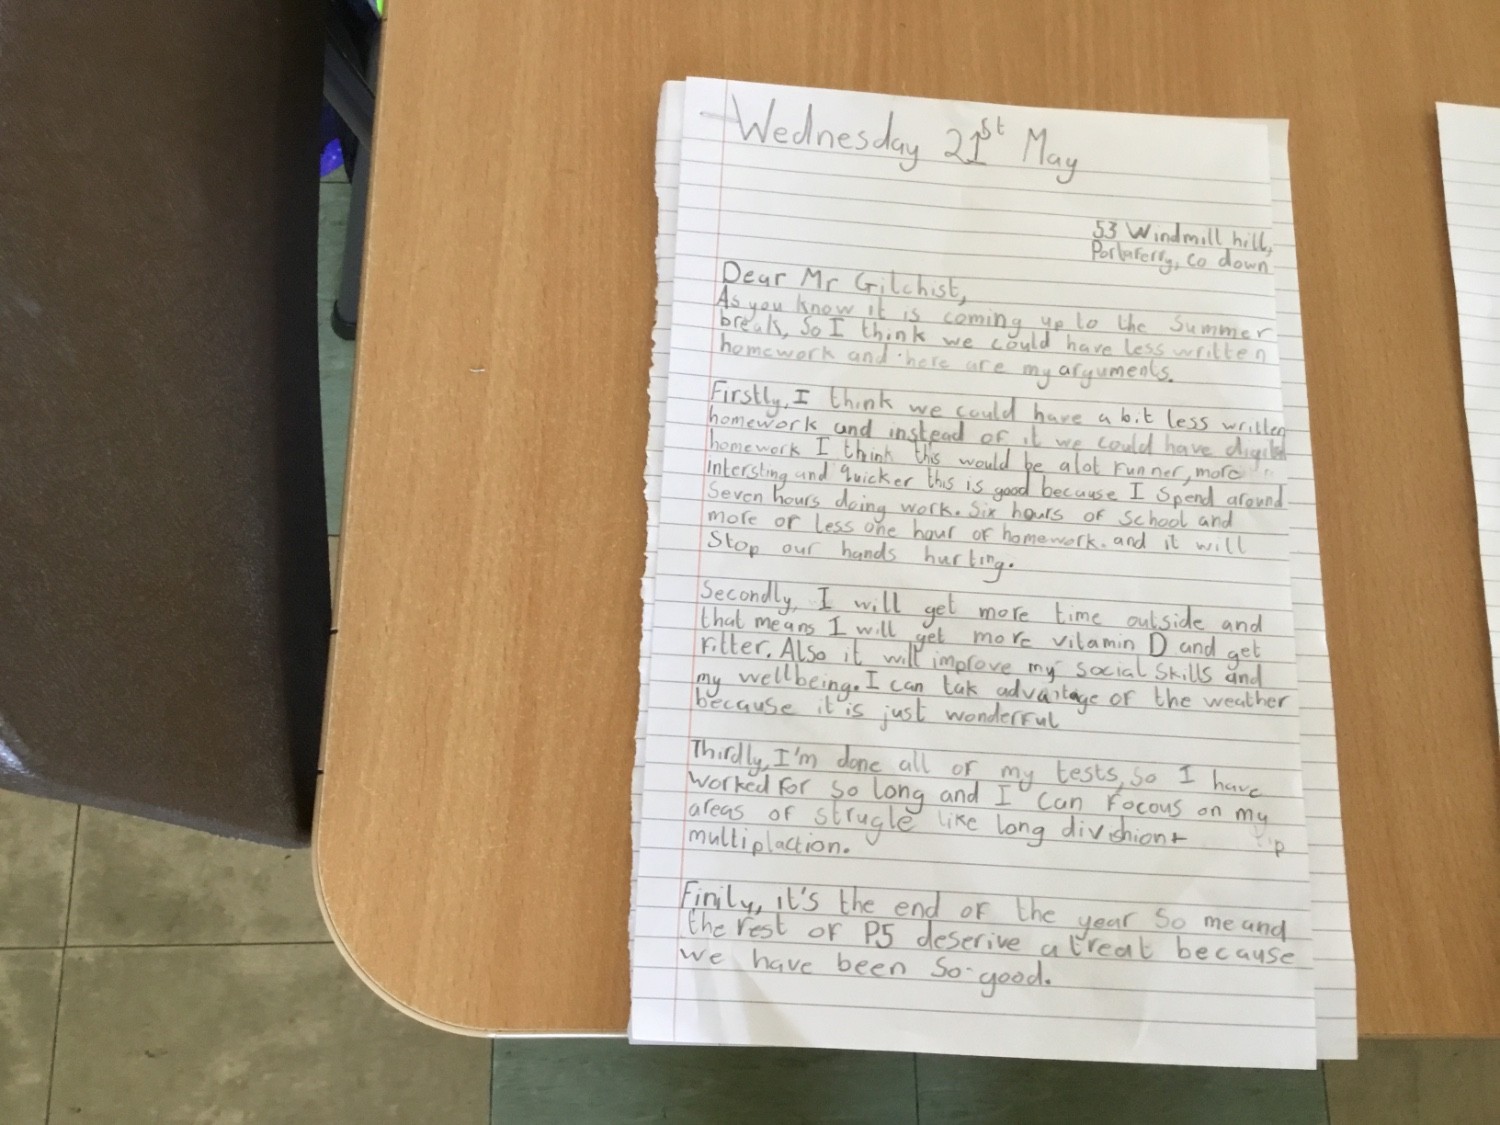 Wednesday 21st May
53 Windmill hill,
Portaferry, Co down
Dear Mr Gilchist,
As you know it is coming up to the Summer
break, So I think we could have less written
homework and here are my arguments.
Firstly, I think we could have a bit less written
homework and instead of it we could have digital
homework I think this would be alot funner, more
intersting and quicker this is good because I spend around
seven hours doing work. Six hours of school and
more or less one hour of homework. and it will
stop our hands hurting.
Secondly, I will get more time outside and
that means I will get more vitamin D and get
fitter. Also it will improve my social skills and
my wellbeing. I can tak advantage of the weather
because it is just wonderful
Thirdly, I'm done all of my tests, so I have
worked for so long and I can focous on my
areas of strugle like long divishion+
multiplaction.
Finily, it's the end of the year so me and
the rest of P5 deserive a treat because
we have been so good.